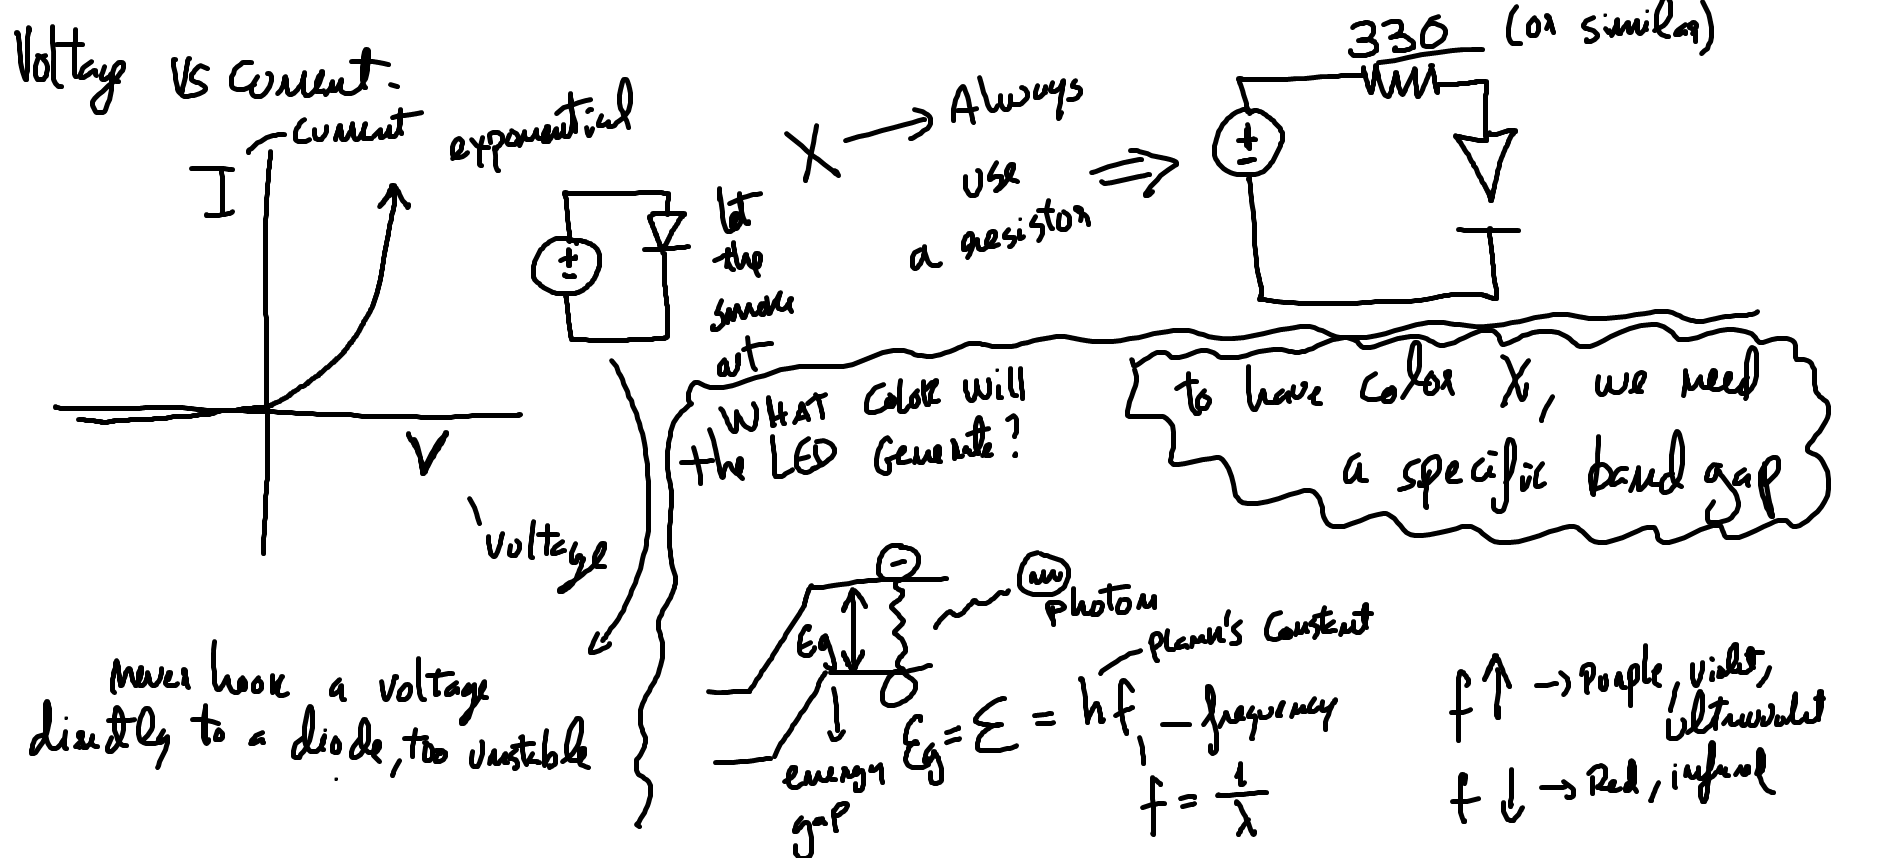 Voltage vs current.
current
I
exponential
V
voltage
let
the
smoke
out
X → Always
use
a resistor
330 (or similar)
never hook a voltage
directly to a diode, too unstable
WHAT color will
the LED Generate?
to have color X, we need
a specific band gap
Eg
energy
gap
photon
Plank's Constant
Eg = E = hf, — frequency
f = 1/λ
f ↑ → Purple, violet,
ultraviolet
f ↓ → Red, infrared